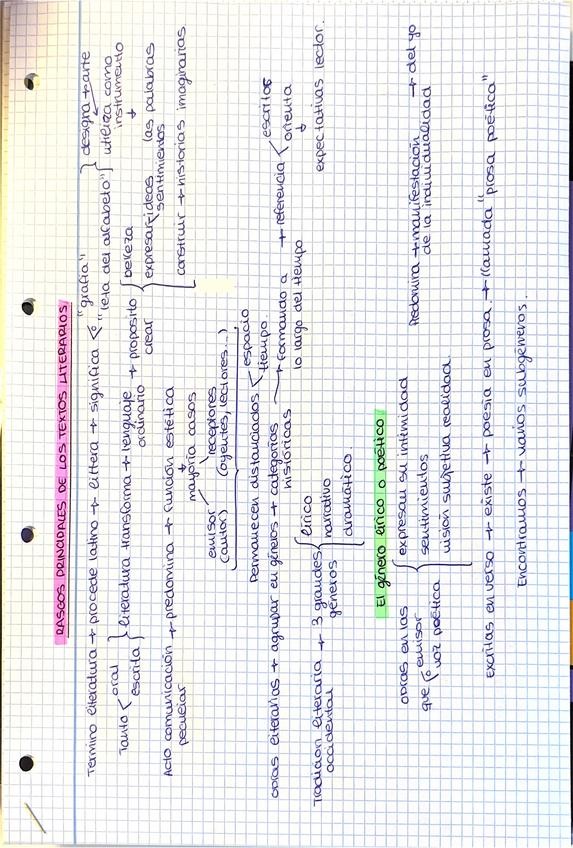 RASGOS PRINCIPALES DE LOS TEXTOS LITERARIOS
Término literatura → procede latino → littera → significa < "grafía" "letra del alfabeto" } designa → arte
utiliza como instrumento
Tanto < oral escrita } literatura transforma → lenguaje ordinario → propósito crear { belleza
expresar < ideas sentimientos las palabras
construir → historias imaginarias
Acto comunicación peculiar → predomina → función estética
mayoría casos
emisor (autor) receptores (oyentes, lectores...)
Permanecen distanciados < espacio tiempo.
Obras literarias → agrupar en géneros → categorías históricas → formando a lo largo del tiempo → referencia < escritos orienta
expectativas lector.
Tradición literaria occidental → 3 grandes géneros { lírico
narrativo
dramático.
El género lírico o poético
Obras en las que < emisor o voz poética { expresan su intimidad
sentimientos
visión subjetiva realidad
Predomina → manifestación de la individualidad → del yo
Escritas en verso → existe → poesía en prosa → llamada "prosa poética"
Encontramos → varios subgéneros.